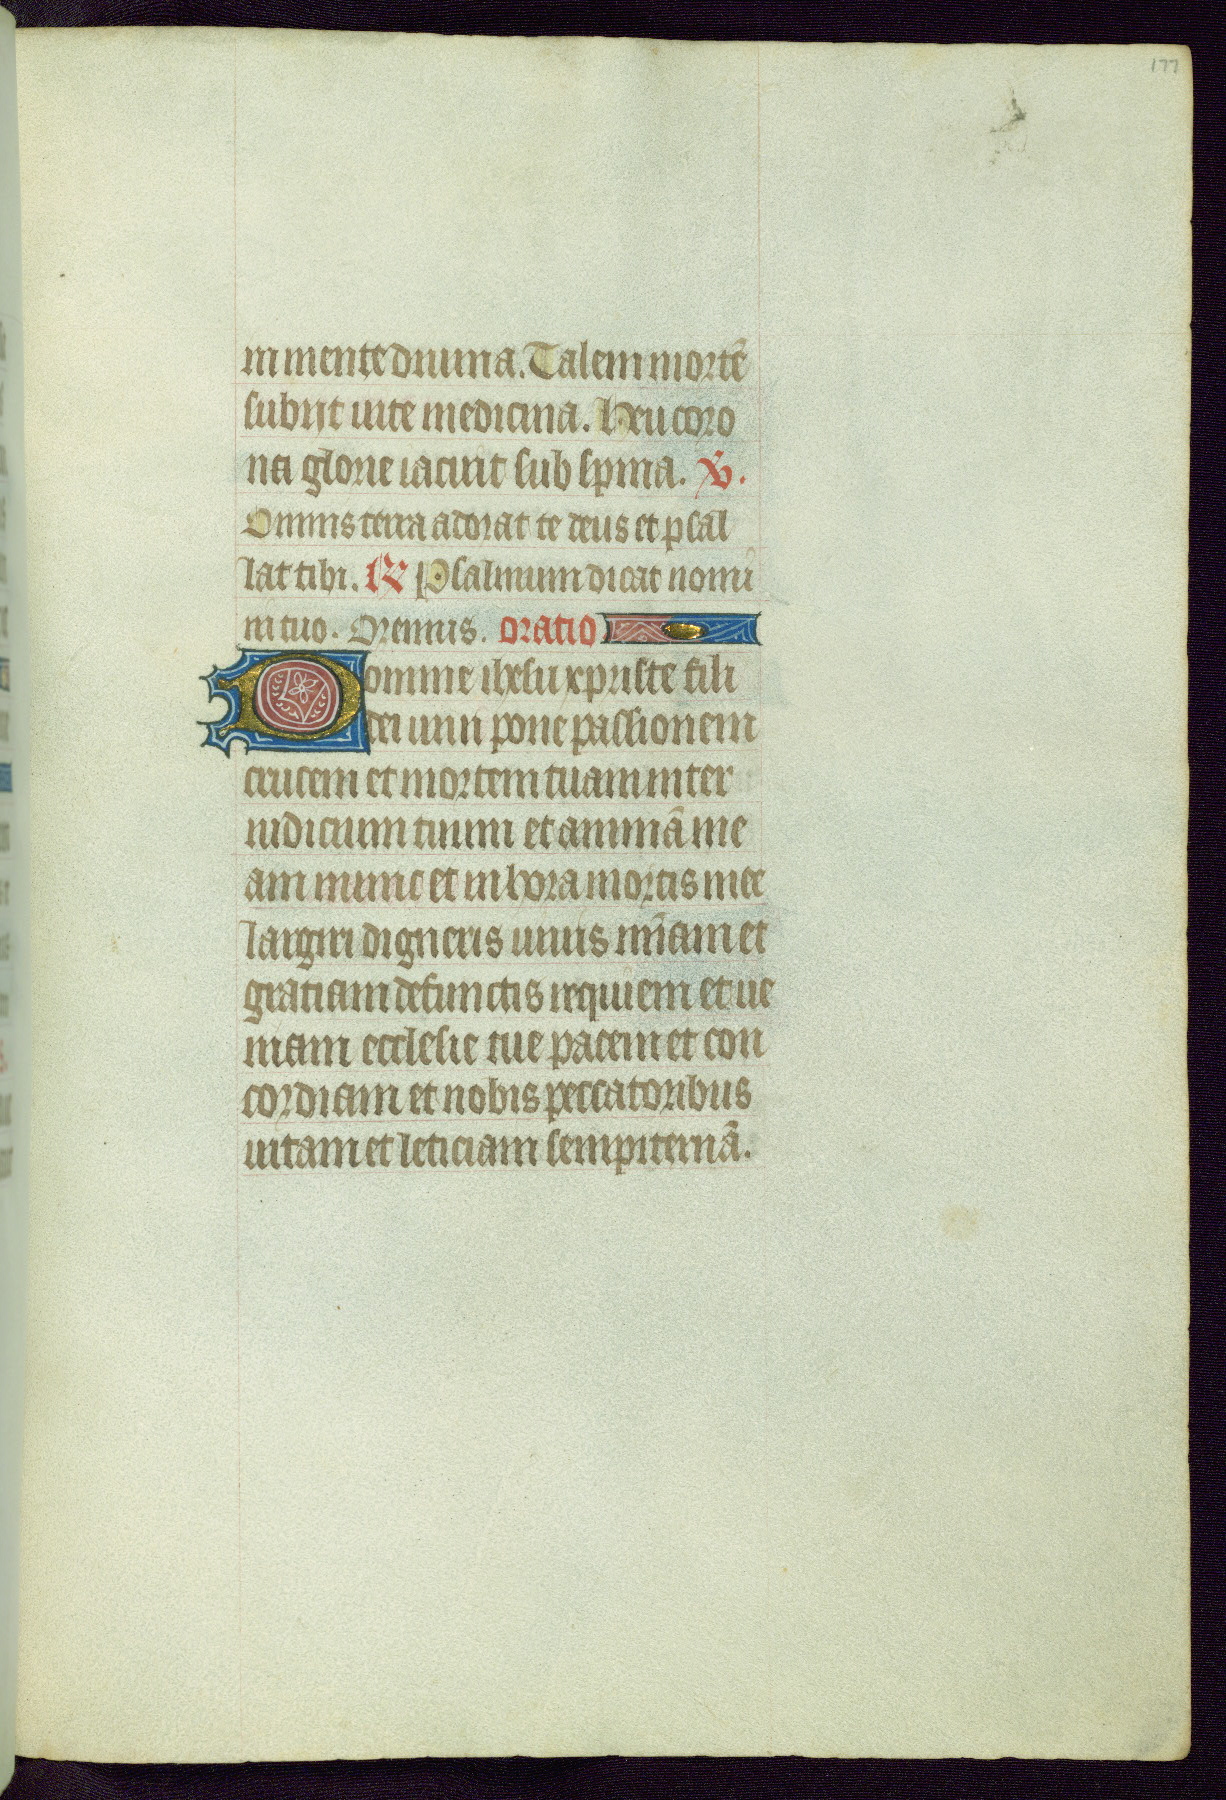 177
in mente diuina. Talem mortē
subijt uite medicina. Heu coro
na glorie iacuit sub spina. ℣.
Omnis terra adorat te deus et psal
lat tibi. ℟ Psalmum dicat nomi
ni tuo. Oremus. oratio
Domine ihesu xpriste fili
dei uiui pone passionem
crucem et mortem tuam inter
iudicium tuum et animā me
am nunc et in hora mortis mee
largiri digneris uiuis mīam et
gratiam defunctis requiem et ue
niam ecclesie tue pacem et con
cordiam et nobis peccatoribus
uitam et leticiam sempiternā.